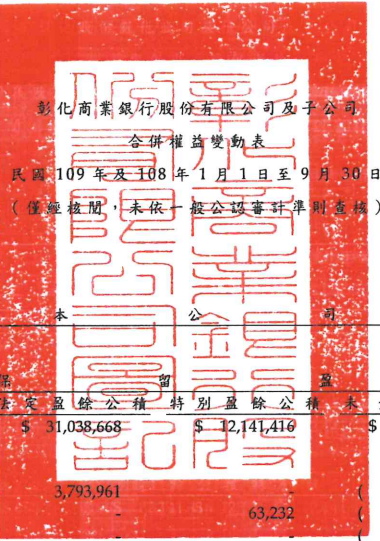 彰化商業銀行股份有限公司及子公司
合併權益變動表
民國 109 年及 108 年 1 月 1 日至 9 月 30 日
(僅經核閱,未依一般公認審計準則查核)
本 公 司
保 留 盈
法定盈餘公積 特別盈餘公積 未
$ 31,038,668 $ 12,141,416 $
3,793,961 - (
- 63,232 (
- - (